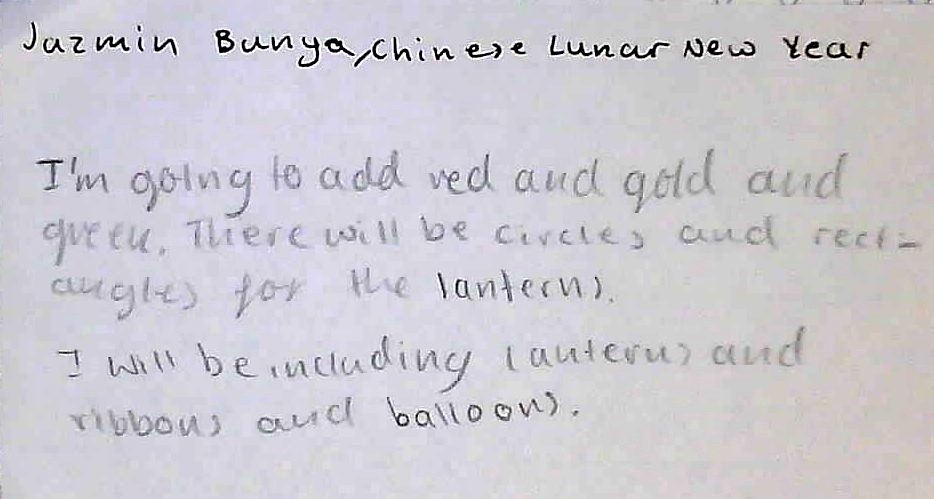 Jazmin Bunya, Chinese Lunar New Year
I'm going to add red and gold and
green. There will be circles and rect-
angles for the lanterns.
I will be including lanterns and
ribbons and balloons.